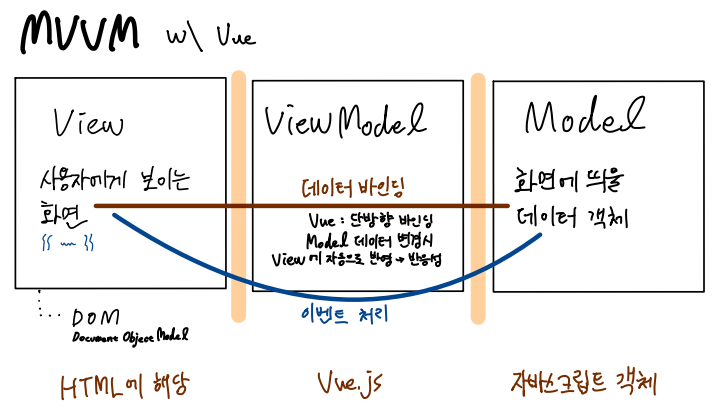 MVVM w\ Vue
View
사용자에게 보이는
화면
{{ ~ }}
DOM
Document Object Model
HTML에 해당
ViewModel
데이터 바인딩
Vue : 단방향 바인딩
Model 데이터 변경시
View에 자동으로 반영 → 반응성
이벤트 처리
Vue.js
Model
화면에 띄울
데이터 객체
자바스크립트 객체